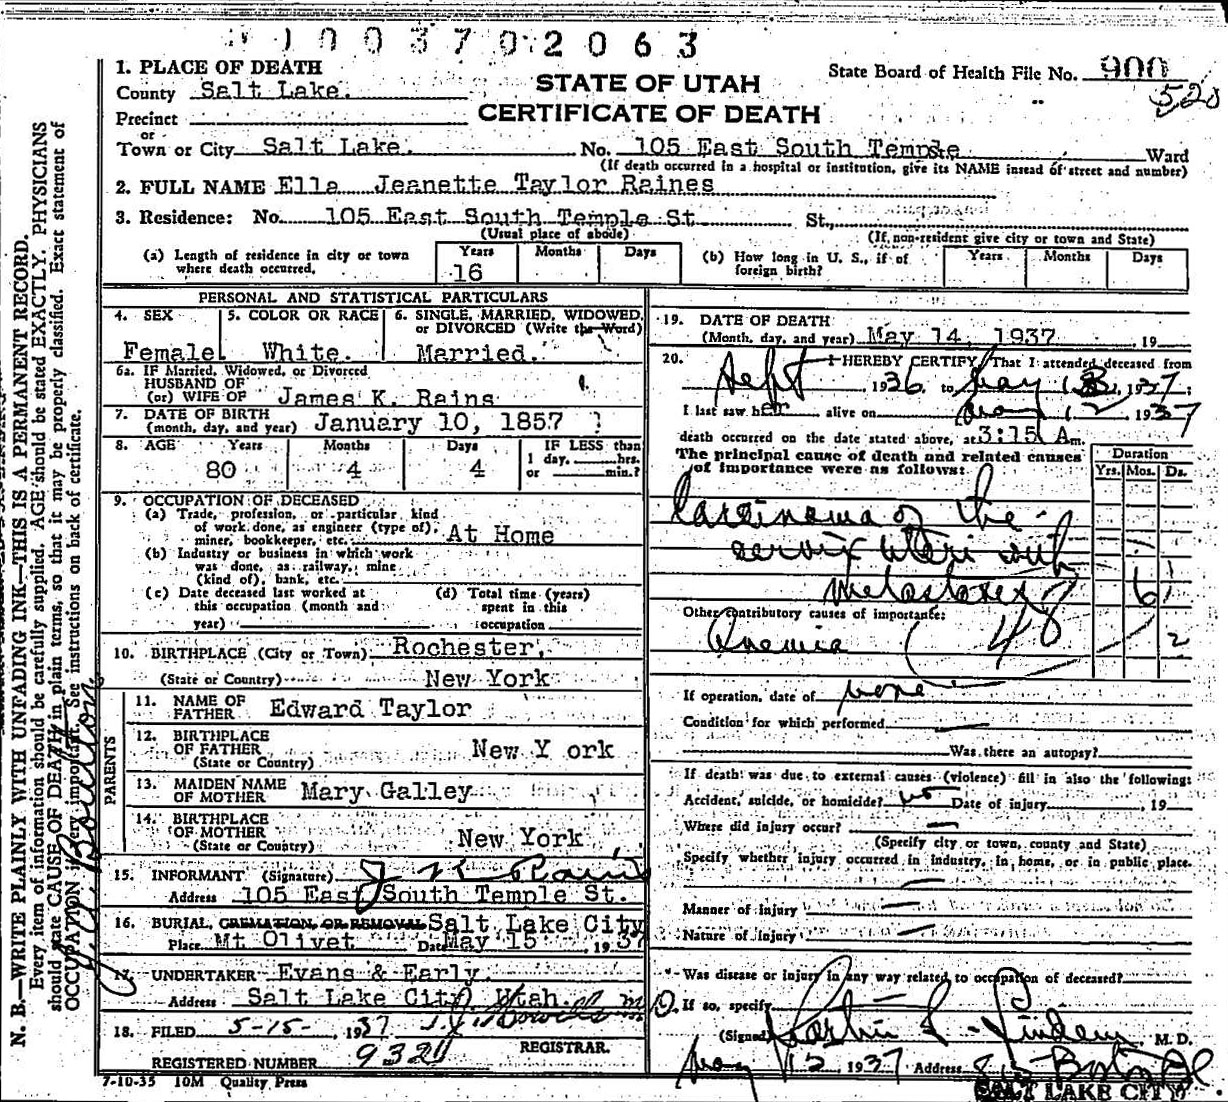 1003702063
1. PLACE OF DEATH
STATE OF UTAH
CERTIFICATE OF DEATH
State Board of Health File No. 900
520
County Salt Lake.
Precinct
or
Town or City Salt Lake. No. 105 East South Temple Ward
(If death occurred in a hospital or institution, give its NAME instead of street and number)
2. FULL NAME Ella Jeanette Taylor Raines
3. Residence: No. 105 East South Temple St St.,
(Usual place of abode) (If non-resident give city or town and State)
(a) Length of residence in city or town where death occurred. Years 16 Months Days
(b) How long in U. S., if of foreign birth? Years Months Days
PERSONAL AND STATISTICAL PARTICULARS
4. SEX 5. COLOR OR RACE 6. SINGLE, MARRIED, WIDOWED, or DIVORCED (Write the Word)
Female White. Married.
6a. IF Married, Widowed, or Divorced
HUSBAND OF
(or) WIFE OF James K. Rains
7. DATE OF BIRTH
(month, day, and year) January 10, 1857
8. AGE Years Months Days IF LESS than
80 4 4 1 day, hrs. or min.?
9. OCCUPATION OF DECEASED
(a) Trade, profession, or particular kind
of work done, as engineer (type of),
miner, bookkeeper, etc. At Home
(b) Industry or business in which work
was done, as railway, mine
(kind of), bank, etc.
(c) Date deceased last worked at this occupation (month and year)
(d) Total time (years) spent in this occupation
10. BIRTHPLACE (City or Town) Rochester,
(State or Country) New York
PARENTS
11. NAME OF FATHER Edward Taylor
12. BIRTHPLACE OF FATHER (State or Country) New Y ork
13. MAIDEN NAME OF MOTHER Mary Galley
14. BIRTHPLACE OF MOTHER (State or Country) New York
15. INFORMANT (Signature) J K Rains
Address 105 East South Temple St.
16. BURIAL, CREMATION, OR REMOVAL Salt Lake City
Place Mt Olivet Date May 15 1937
17. UNDERTAKER Evans & Early.
Address Salt Lake City, Utah.
18. FILED 5-15- 1937
REGISTRAR.
REGISTERED NUMBER 9320
7-10-35 10M Quality Press
19. DATE OF DEATH
(Month, day, and year) May 14, 1937 , 19
20. I HEREBY CERTIFY, That I attended deceased from
Sept 1936 to May 13, 1937;
I last saw her alive on May 12 1937
death occurred on the date stated above, at 3:15 A m.
The principal cause of death and related causes
of importance were as follows:
Duration
Yrs. Mos. Ds.
Carcinoma of the
cervix uteri with
metastases 6
Other contributory causes of importance:
Anemia 48 2
If operation, date of none
Condition for which performed
Was there an autopsy?
If death was due to external causes (violence) fill in also the following:
Accident, suicide, or homicide? no Date of injury , 19
Where did injury occur?
(Specify city or town, county and State)
Specify whether injury occurred in industry, in home, or in public place.
Manner of injury
Nature of injury
Was disease or injury in any way related to occupation of deceased?
If so, specify
(Signed) M. D.
May 15 1937 Address
SALT LAKE CITY
N. B.—WRITE PLAINLY WITH UNFADING INK—THIS IS A PERMANENT RECORD.
Every item of information should be carefully supplied. AGE should be stated EXACTLY. PHYSICIANS
should state CAUSE OF DEATH in plain terms, so that it may be properly classified. Exact statement of
OCCUPATION is very important. See instructions on back of certificate.